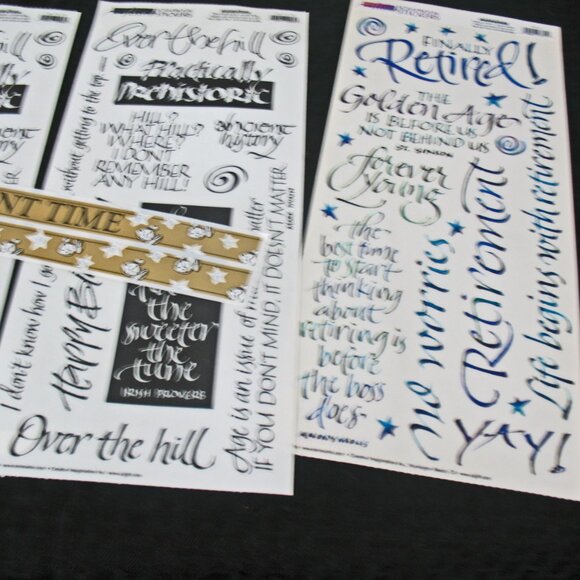 Over the hill
Practically
Prehistoric
without getting to the top
HILL?
WHAT HILL?
WHERE?
I DON'T
REMEMBER
ANY HILL!
ancient
history
NT TIME
I don't know how I go
HAPPY B
the
sweeter
the
tune
IRISH PROVERB
Age is an issue of
matter
IF YOU DON'T MIND, IT DOESN'T MATTER
MARK TWAIN
Over the hill
FINALLY
Retired!
THE
Golden Age
IS BEFORE US
NOT BEHIND US
ST. SIMON
forever
young
the
best time
to start
thinking
about
retiring is
before
the boss
does
no worries
Retirement
Life begins with retirement
YAY!